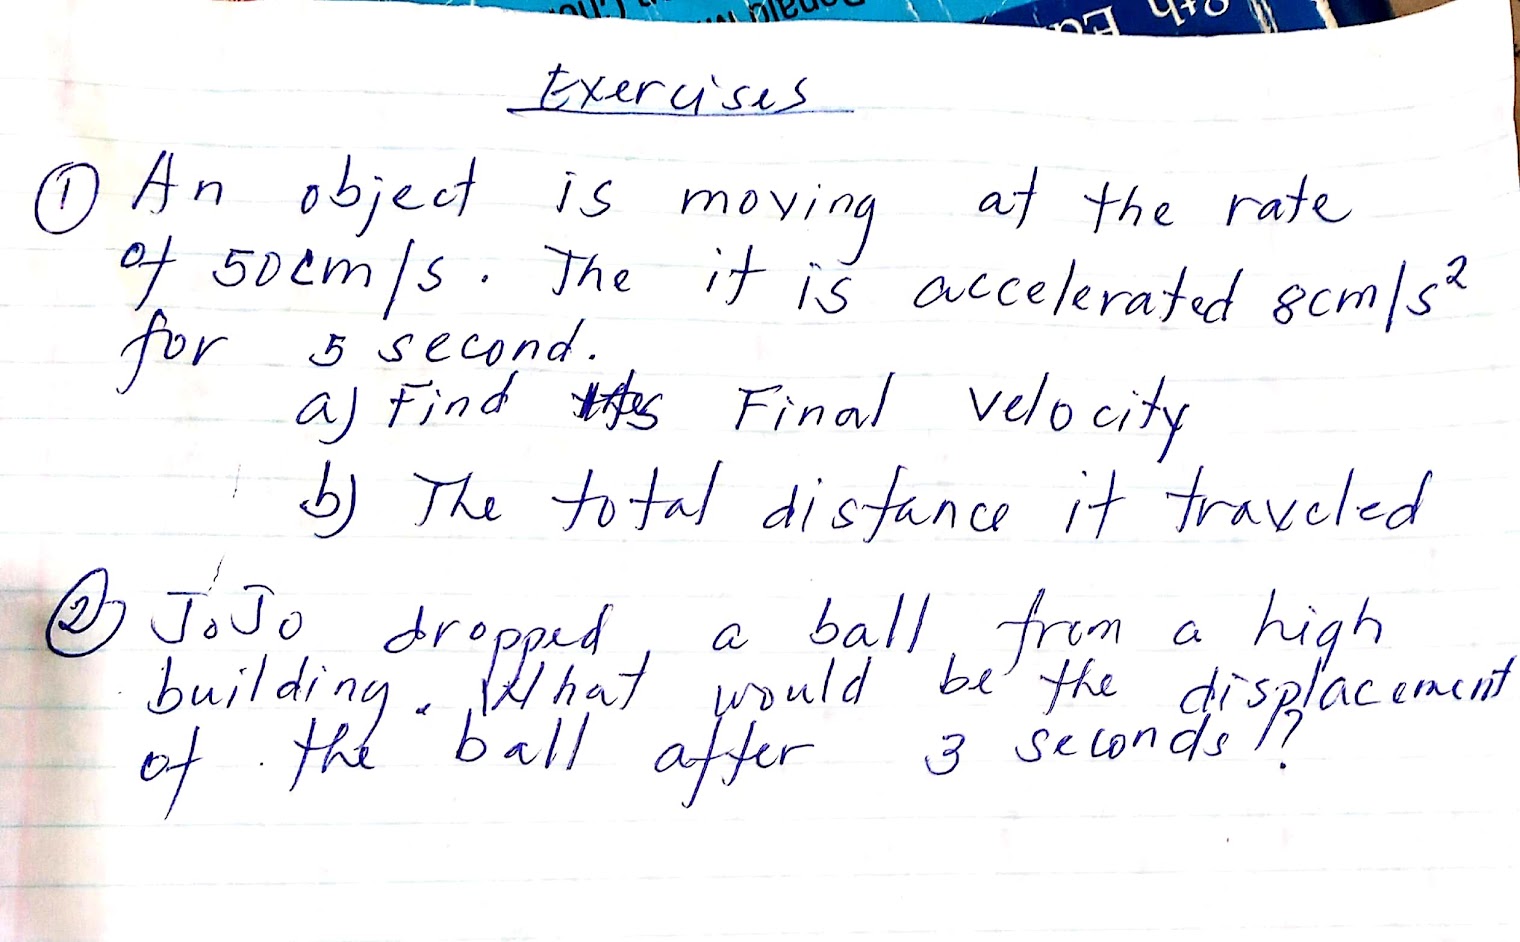 Exercises
① An object is moving at the rate
of 50cm/s. The it is accelerated 8cm/s²
for 5 second.
a) Find its Final velocity
b) The total distance it traveled
② JoJo dropped a ball from a high
building. What would be the displacement
of the ball after 3 seconds?